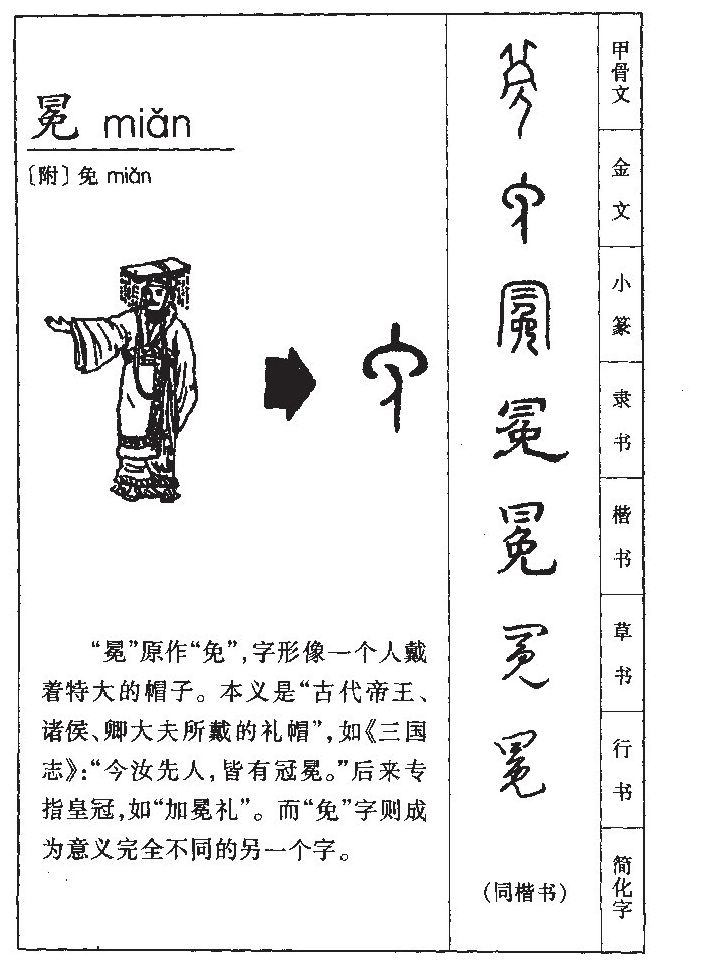 冕 miǎn
〔附〕免 miǎn
“冕”原作“免”，字形像一个人戴
着特大的帽子。本义是“古代帝王、
诸侯、卿大夫所戴的礼帽”，如《三国
志》：“今汝先人，皆有冠冕。”后来专
指皇冠，如“加冕礼”。而“免”字则成
为意义完全不同的另一个字。
甲骨文
金文
小篆
冕 隶书
冕 楷书
冕 草书
冕 行书
（同楷书） 简化字